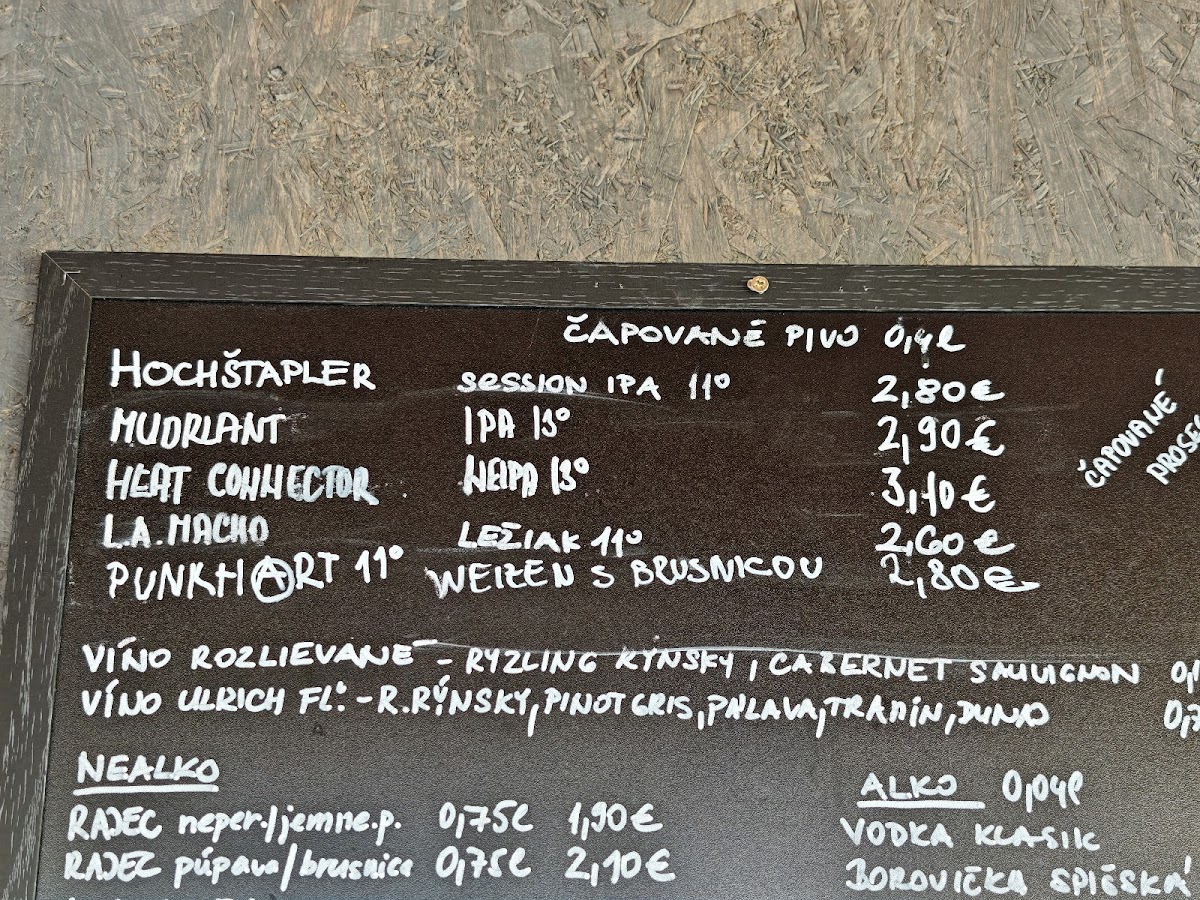 ČAPOVANÉ PIVO 0,4l
HOCHŠTAPLER SESSION IPA 11° 2,80€
MUDRLANT IPA 13° 2,90€
HEAT CONNECTOR NEIPA 13° 3,10€
L.A. MACHO LEŽIAK 11° 2,60€
PUNKHART 11° WEIZEN S BRUSNICOU 2,80€
ČAPOVANÉ
VÍNO ROZLIEVANÉ - RYZLING RÝNSKY, CABERNET SAUVIGNON
VÍNO ULRICH FL: - R.RÝNSKY, PINOT GRIS, PÁLAVA, TRAMÍN, DUNAJ
NEALKO
RAJEC neper./jemne.p. 0,75l 1,90€
RAJEC púpava/brusnica 0,75l 2,10€
ALKO 0,04l
VODKA KLASIK
BOROVIČKA SPIŠSKÁ